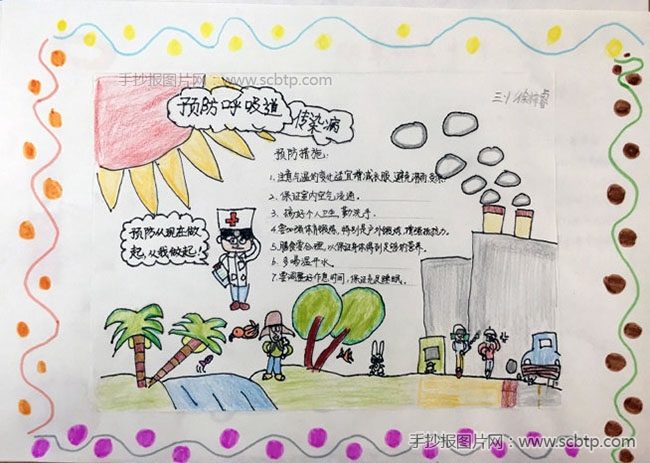 手抄报图片网:www.scbtp.com
预防呼吸道
传染病
三1
预防措施:
1、注意气温的变化适宜增减衣服,避免淋雨受冻.
2、保证室内空气流通.
3、搞好个人卫生,勤洗手.
4、要加强体育锻炼,特别是户外锻炼,增强抵抗力.
5、膳食要合理,以保证身体得到足够的营养.
6、多喝温开水.
7、要调整好作息时间,保证充足睡眠.
预防从现在做
起,从我做起!
手抄报图片网:www.scbtp.com